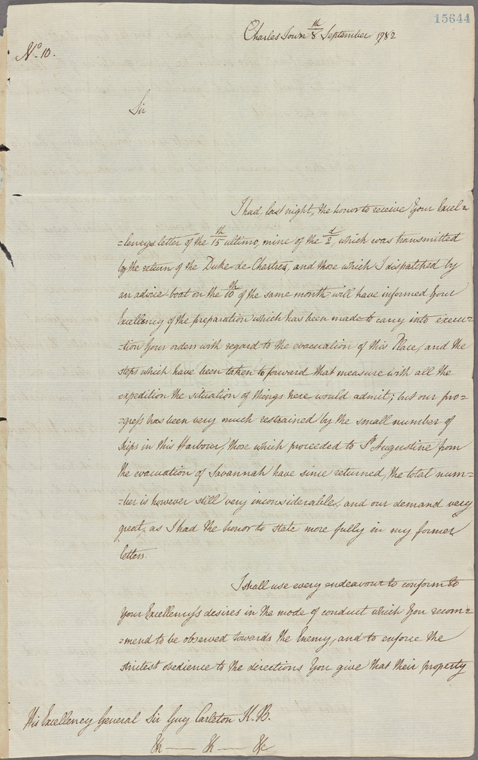 15644
Charles Town 8th September 1782
No. 10.
Sir
I had, last night, the honor to receive Your Excel=
=lency's letter of the 15th ultimo, mine of the 2d, which was transmitted
by the return of the Duke de Chartres, and those which I dispatched by
an advice boat on the 10th of the same month will have informed Your
Excellency of the preparation which has been made to carry into execu=
=tion Your orders with regard to the evacuation of this Place, and the
steps which have been taken to forward that measure with all the
expedition the situation of things here would admit; but our pro=
=gress has been very much restrained by the small number of
ships in this Harbour, those which proceeded to St. Augustine from
the evacuation of Savannah have since returned, the total num=
=ber is however still very inconsiderable, and our demand very
great, as I had the honor to state more fully in my former
letters.
I shall use every endeavour to conform to
your Excellency's desires in the mode of conduct which You recom=
=mend to be observed towards the Enemy, and to enforce the
strictest obedience to the directions You give that their property
His Excellency General Sir Guy Carleton K.B.
&c — &c — &c